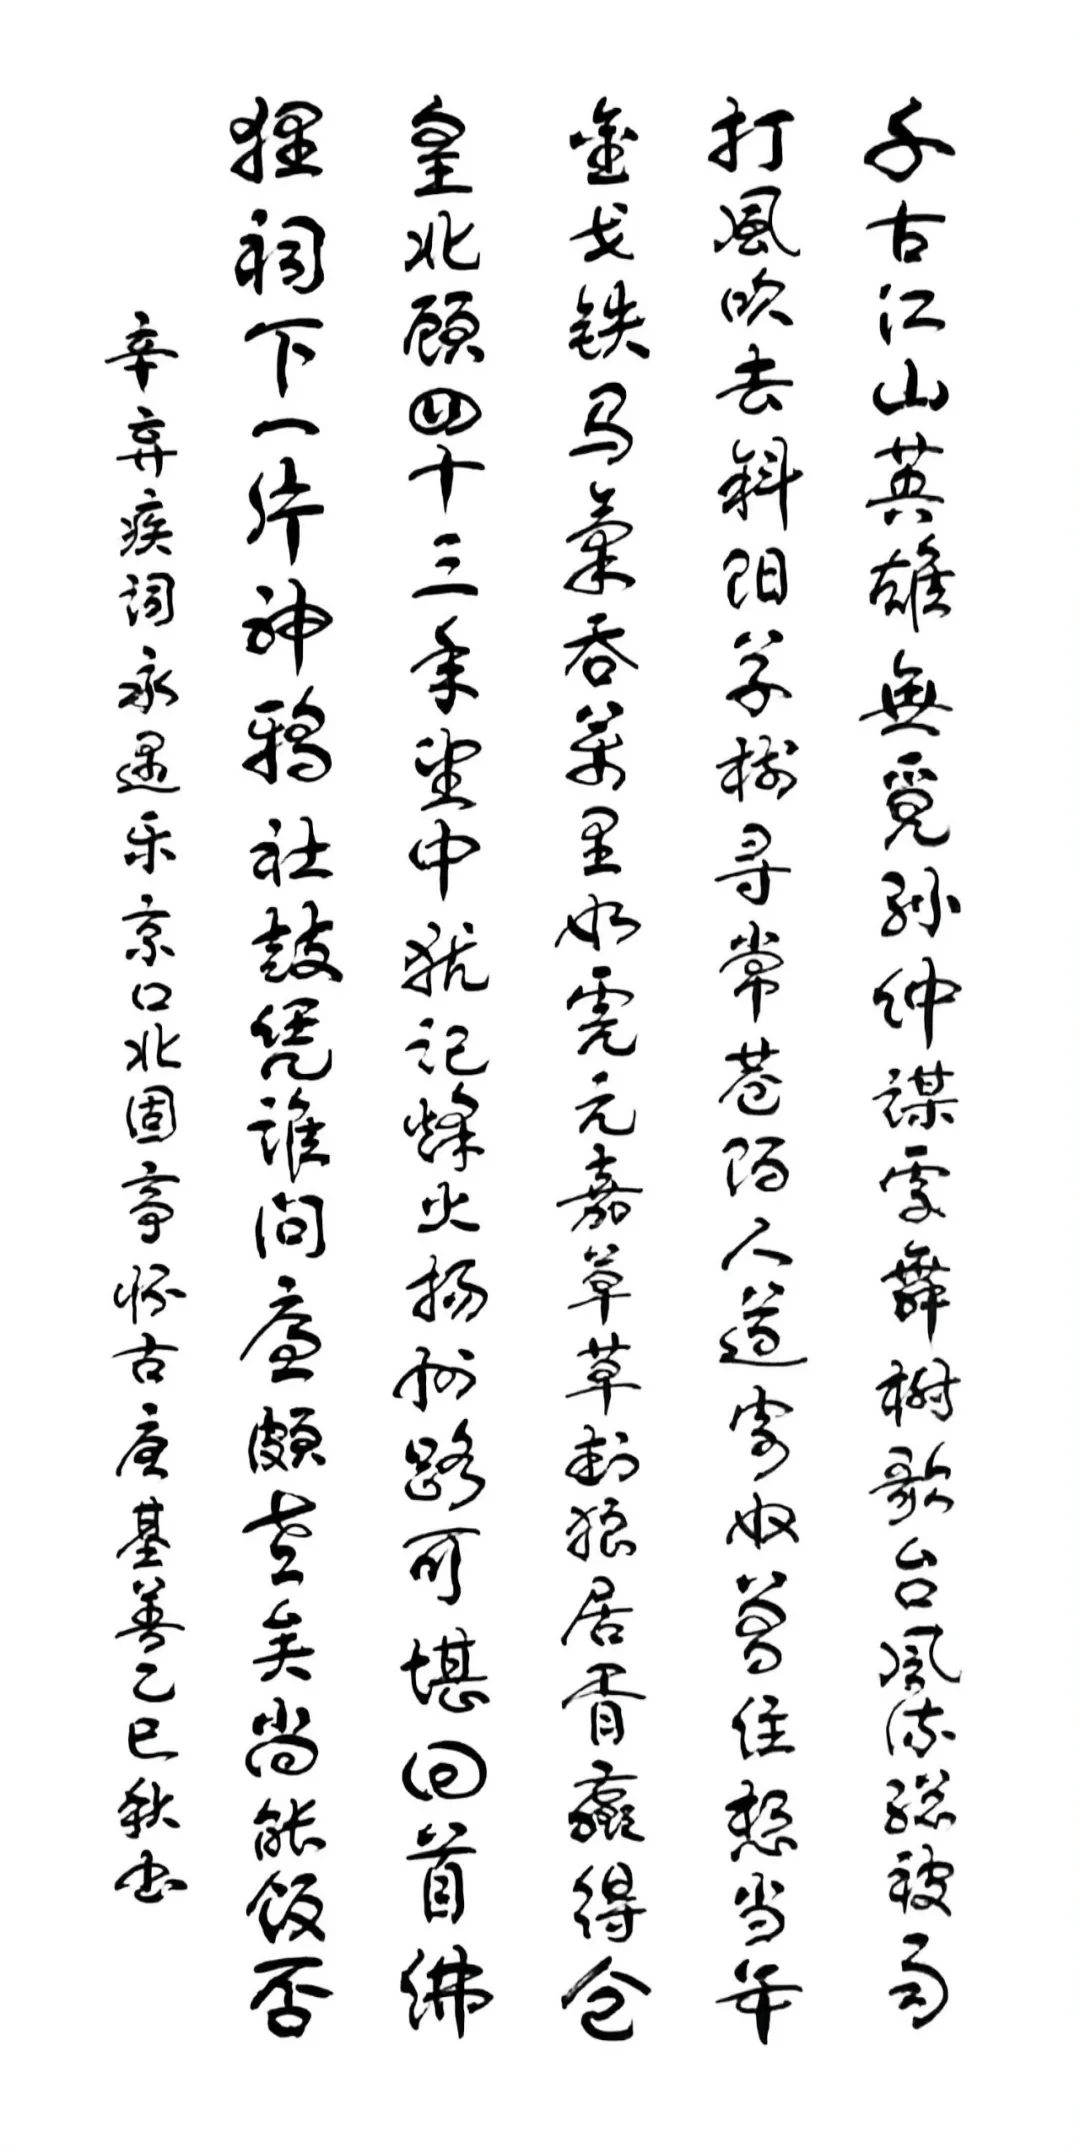 千古江山英雄無覓孙仲谋處舞榭歌台風流總被雨
打風吹去斜阳草树寻常巷陌人道寄奴曾住想当年
金戈铁马氣吞萬里如虎元嘉草草封狼居胥赢得仓
皇北顾四十三年望中犹记烽火扬州路可堪回首佛
狸祠下一片神鸦社鼓凭谁问廉颇老矣尚能饭否
辛弃疾词永遇乐京口北固亭怀古唐基善乙巳秋书